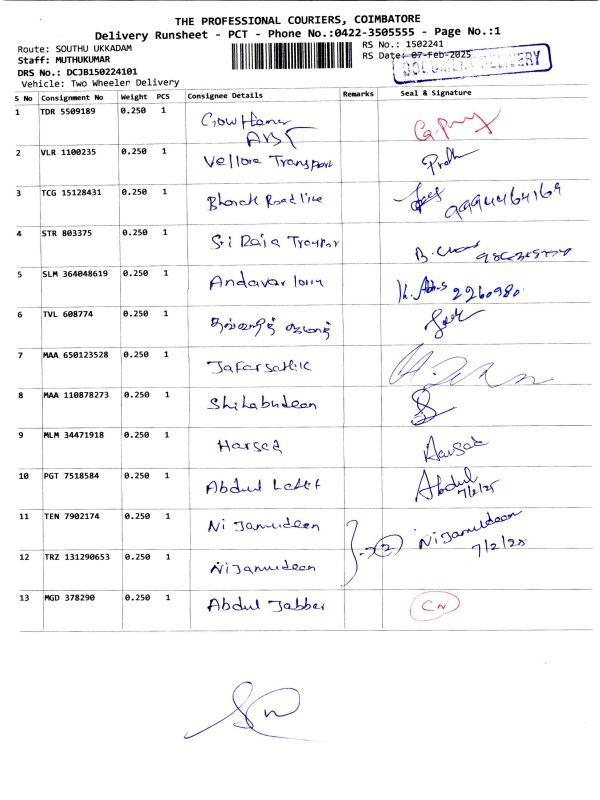 THE PROFESSIONAL COURIERS, COIMBATORE
Delivery Runsheet - PCT - Phone No.:0422-3505555 - Page No.:1
Route: SOUTHU UKKADAM
RS No.: 1502241
Staff: MUTHUKUMAR
RS Date: 07-Feb-2025
DOCUMENT DELIVERY
DRS No.: DCJB150224101
Vehicle: Two Wheeler Delivery
S No Consignment No Weight PCS Consignee Details Remarks Seal & Signature
1 TDR 5509189 0.250 1
2 VLR 1100235 0.250 1 Vellore Transport
3 TCG 15128431 0.250 1 Bharat Roadline 9994464169
4 STR 803375 0.250 1 Sri Raja
5 SLM 364048619 0.250 1 Andavar lorry 2260980
6 TVL 608774 0.250 1
7 MAA 650123528 0.250 1 Jafarsathik
8 MAA 110878273 0.250 1 Shihabudeen
9 MLM 34471918 0.250 1 Harsed
10 PGT 7518584 0.250 1 Abdul Latif Abdul
7/2/25
11 TEN 7902174 0.250 1 Nijamudeen
→ 2 Nijamudeen
7/2/25
12 TRZ 131290653 0.250 1 Nijamudeen
13 MGD 378290 0.250 1 Abdul Jabbar CN